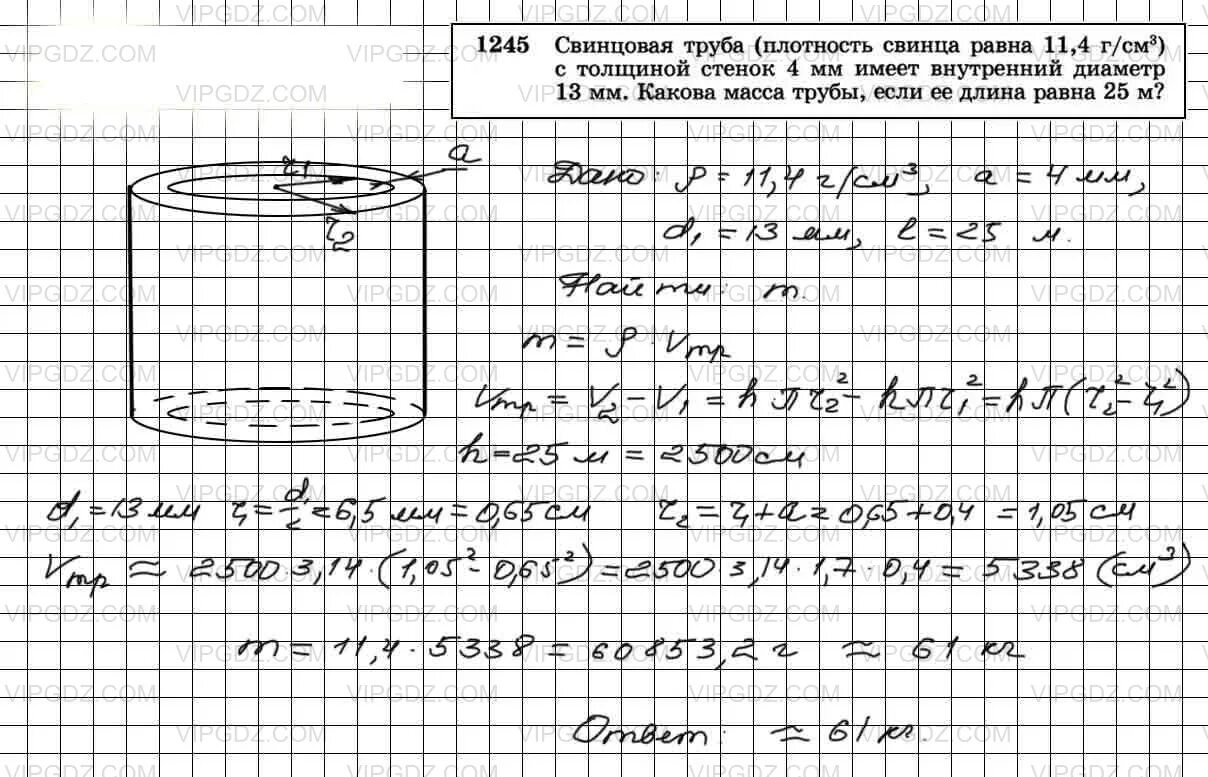 1245 Свинцовая труба (плотность свинца равна 11,4 г/см³)
с толщиной стенок 4 мм имеет внутренний диаметр
13 мм. Какова масса трубы, если ее длина равна 25 м?
r₁
a
r₂
Дано: ρ = 11,4 г/см³, a = 4 мм,
d₁ = 13 мм, l = 25 м.
Найти: m.
m = ρ · Vтр
Vтр = V₂ - V₁ = hπr₂² - hπr₁² = hπ(r₂² - r₁²)
h = 25 м = 2500 см
d₁ = 13 мм r₁ = d₁/2 = 6,5 мм = 0,65 см r₂ = r₁ + a = 0,65 + 0,4 = 1,05 см
Vтр ≈ 2500 · 3,14 · (1,05² - 0,65²) = 2500 · 3,14 · 1,7 · 0,4 = 5338 (см³)
m = 11,4 · 5338 = 60853,2 г ≈ 61 кг
Ответ: ≈ 61 кг.
VIPGDZ.COM